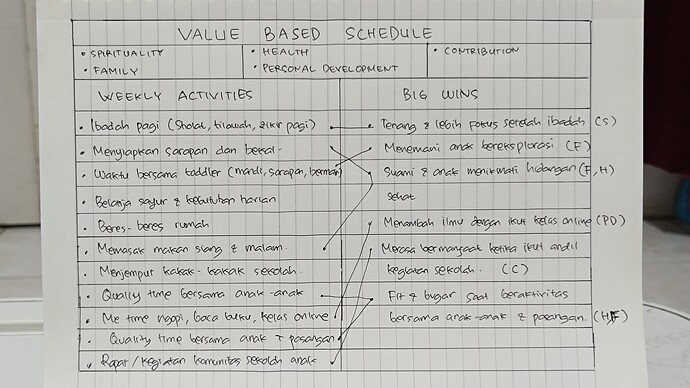 VALUE BASED SCHEDULE
• SPIRITUALITY • HEALTH • CONTRIBUTION
• FAMILY • PERSONAL DEVELOPMENT
WEEKLY ACTIVITIES
• Ibadah pagi (Sholat, tilawah, zikir pagi)
• Menyiapkan sarapan dan bekal
• Waktu bersama toddler (mandi, sarapan, bermain)
• Belanja sayur & kebutuhan harian
• Beres-beres rumah
• Memasak makan siang & malam.
• Menjemput kakak-kakak sekolah.
• Quality time bersama anak-anak
• Me time ngopi, baca buku, kelas online
• Quality time bersama anak + pasangan
• Rapat / kegiatan komunitas sekolah anak
BIG WINS
Tenang & lebih fokus setelah ibadah (S)
Menemani anak bereksplorasi (F)
Suami & anak menikmati hidangan (F, H)
sehat
Menambah ilmu dengan ikut kelas online (PD)
Merasa bermanfaat ketika ikut andil
kegiatan sekolah. (C)
Fit & bugar saat beraktivitas
bersama anak-anak & pasangan. (H, F)